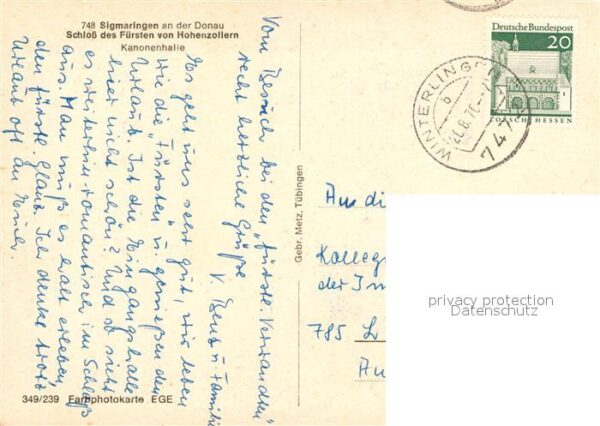 748 Sigmaringen an der Donau
Schloß des Fürsten von Hohenzollern
Kanonenhalle
Vom Besuch bei den „fürstl. Verwandten"
recht herzliche Grüße
V. Benz u. Familie
Es geht uns sehr gut, wir leben
wie die „Fürsten" u. genießen den
Urlaub. Ist die Eingangshalle
hier nicht schön? Und so sieht
es weiterhin romantisch im Schloß
aus. Man muß es halt erleben
den fürstl. Glanz. Ich denke trotz
Urlaub oft an Euch.
349/239 Farbphotokarte EGE
Gebr. Metz, Tübingen
Deutsche Bundespost
20
LORSCH/HESSEN
WINTERLINGEN
b
747
An di
Kolleg
der In
785 L
Au
privacy protection
Datenschutz